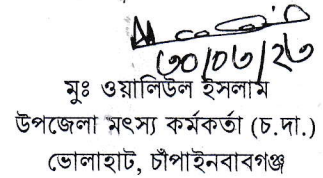 ৩০/০৮/২৩
মুঃ ওয়ালিউল ইসলাম
উপজেলা মৎস্য কর্মকর্তা (চ.দা.)
ভোলাহাট, চাঁপাইনবাবগঞ্জ